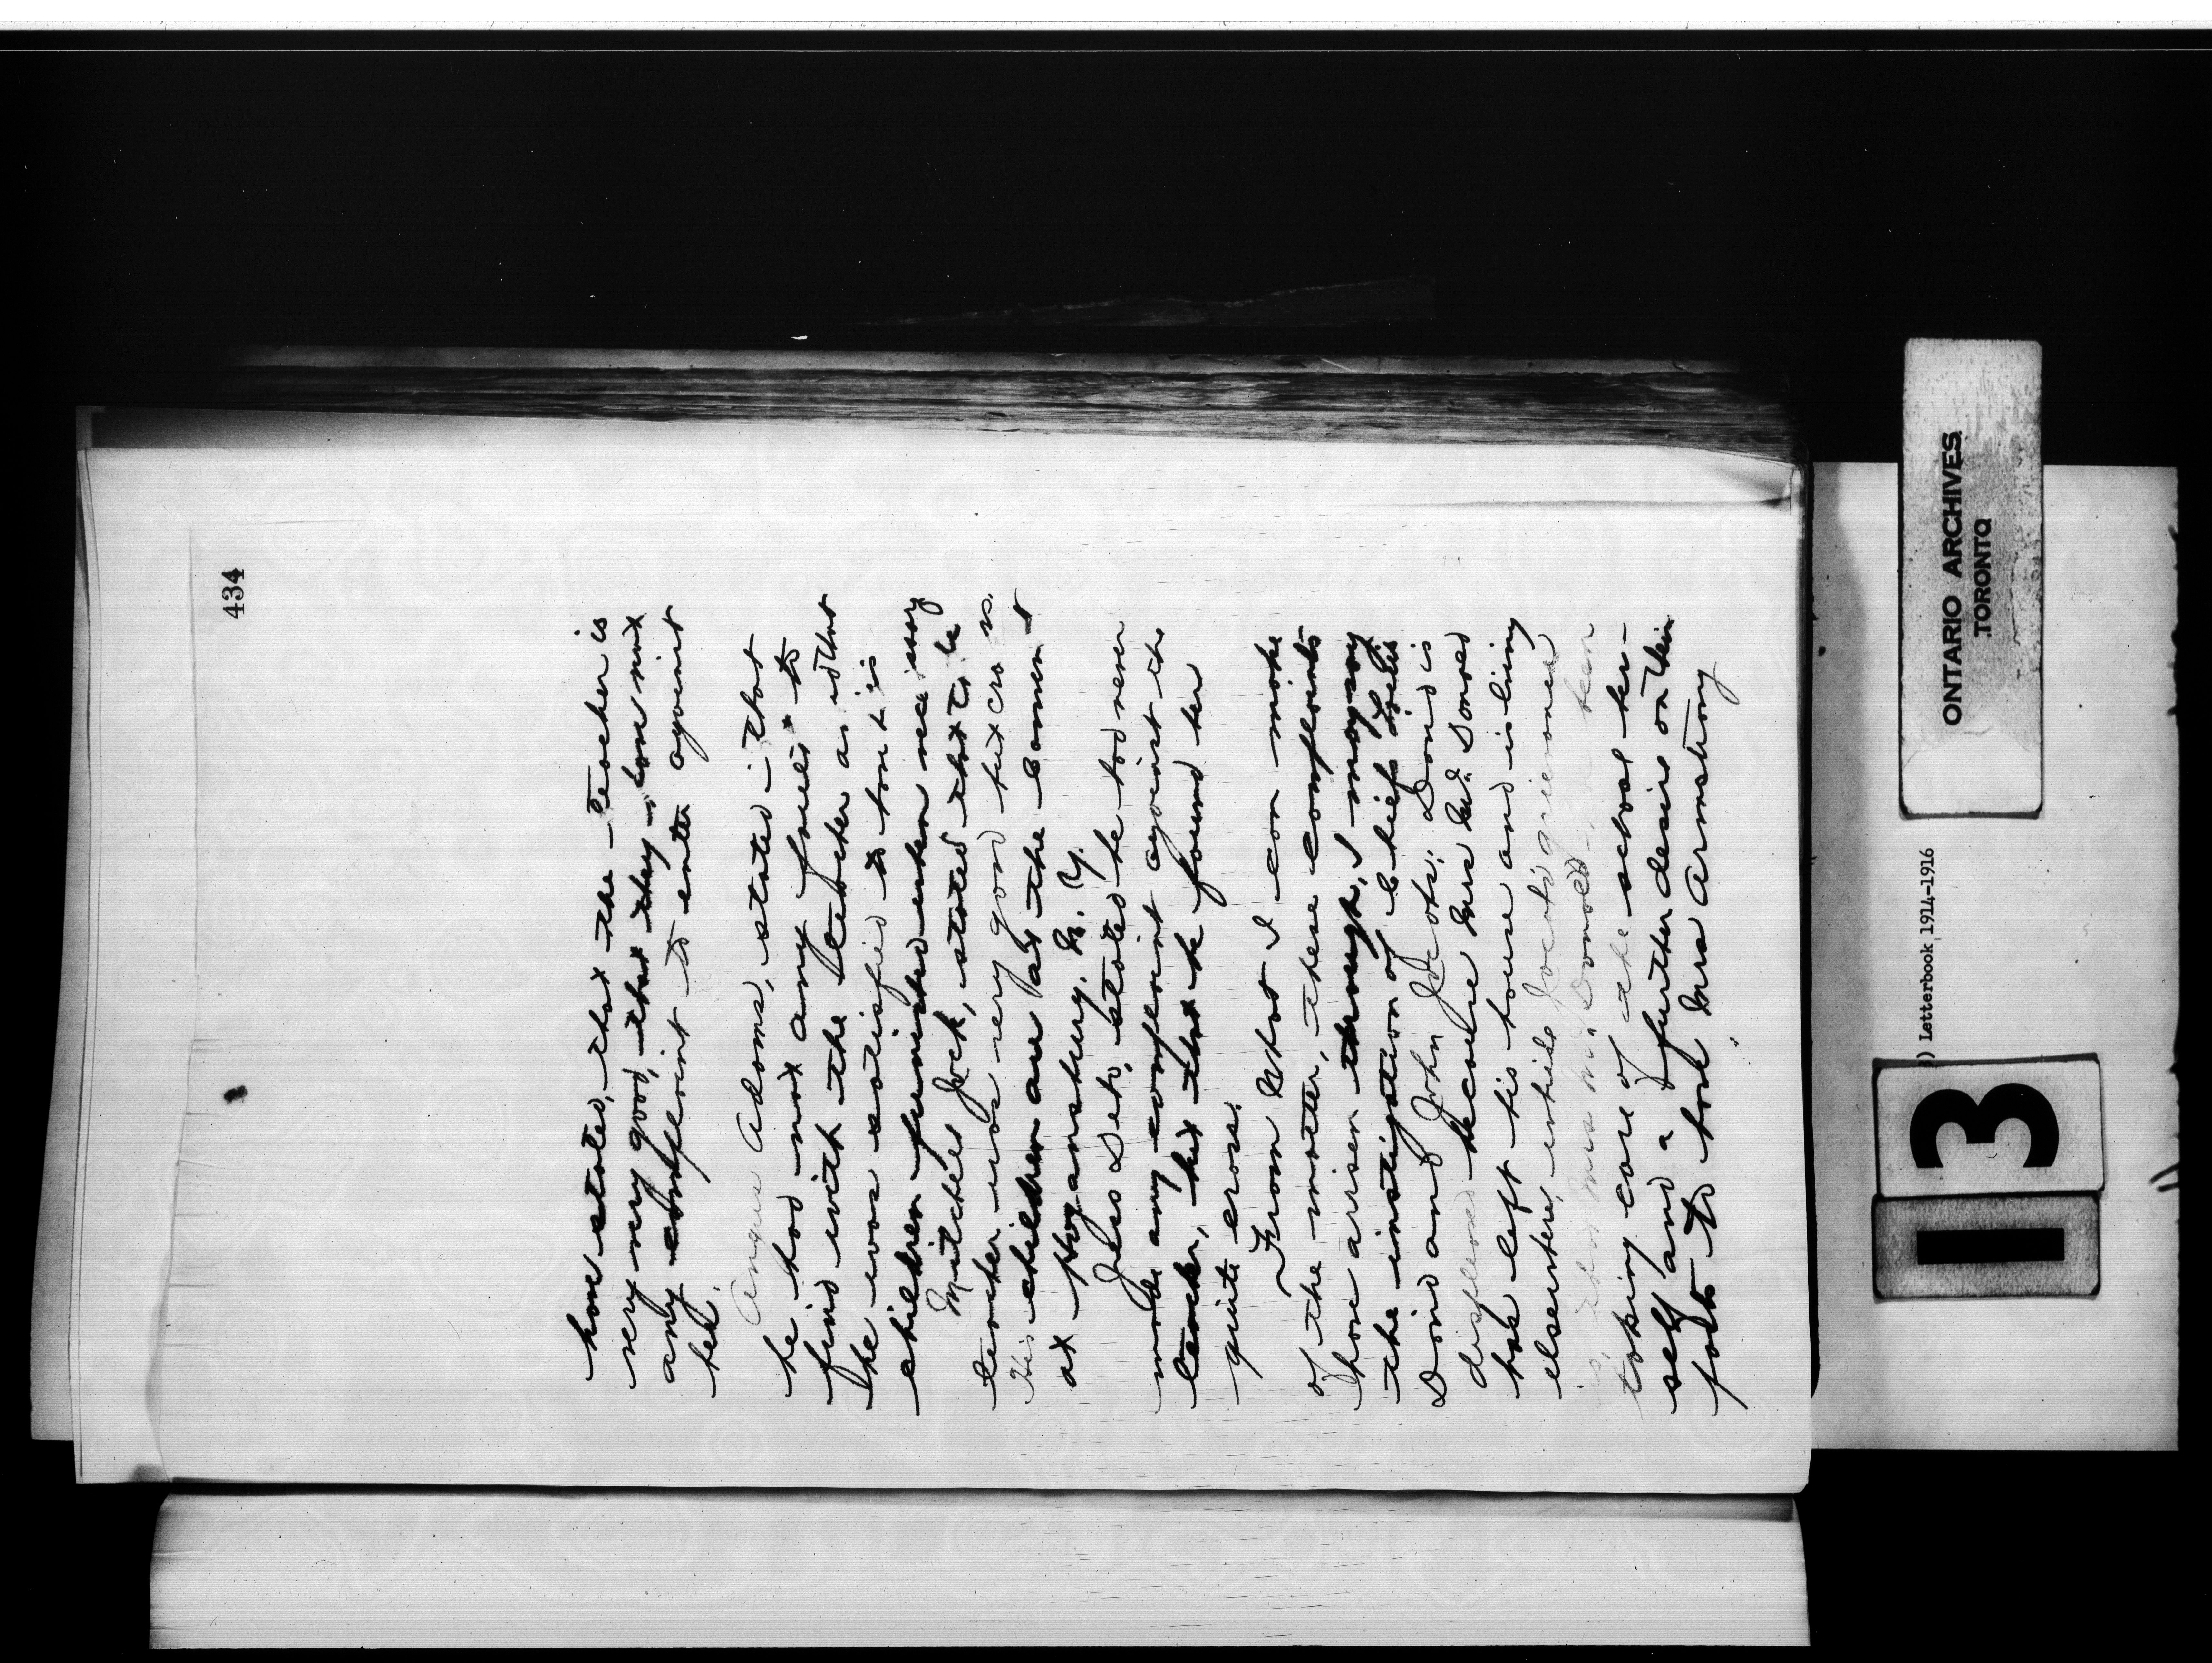 434
have stated, that the teacher is
very very good, that they have not
any complaint to enter against
her.
Angus Adams, stated that
he had not any fault to
find with the teacher as that
he was satisfied to have his
children punished when necessary
Mitchel Jock, stated that the
teacher was very good but cross.
His children are at the Convent
at Hogansburg, N. Y.
Jess Deto, stated he had never
made any complaint against the
teacher, but that he found her
quite cross.
From what I can make
of the matter, these complaints
have arisen through, I may say
the instigation of Chiefs
David and John Jocots. David is
displeased because Mrs
has left his house and is living
elsewhere, while Jocots grievance
is, that Mrs
taking care of the school her-
self and a further desire on their
parts to have Mrs Armstrong
ONTARIO ARCHIVES
TORONTO
) Letterbook 1914-1916
13